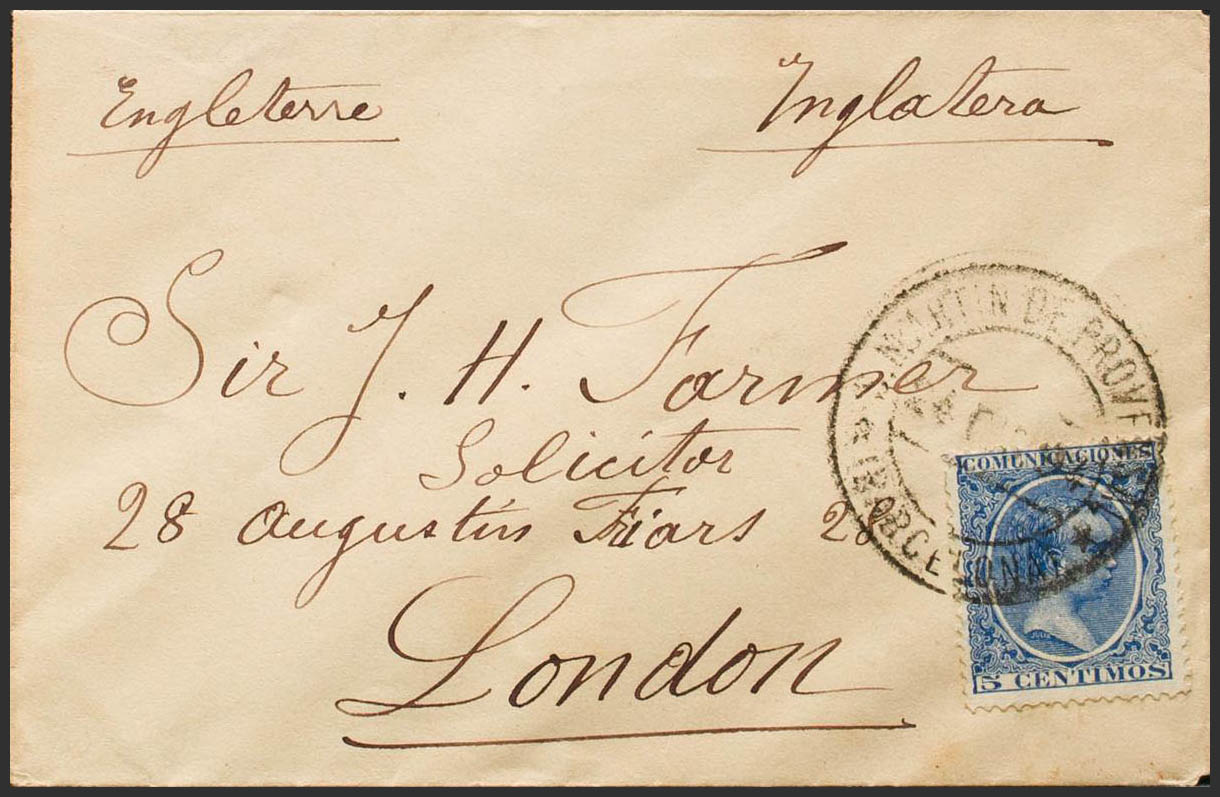 Engleterre
Inglatera
Sir J. H. Farmer
Solicitor
28 Augustin Friars 28
London
MARTIN DE PROVE
(BARCELONA)
COMUNICACIONES
5 CENTIMOS